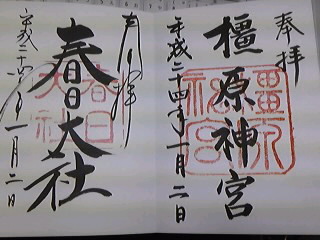 奉拝
橿原神宮
平成二十四年一月二日
奉拝
春日大社
平成二十四年一月二日